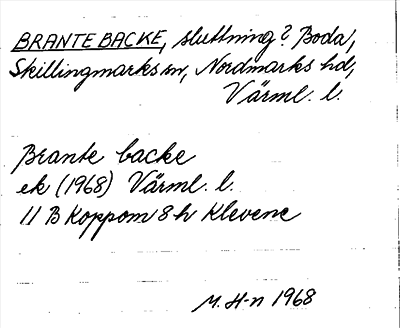 BRANTE BACKE, sluttning? Boda,
Skillingmarks sn, Nordmarks hd,
Värml. l.
Brante backe
ek (1968) Värml. l.
11 B Koppom 8 h Klevene
M. H-n 1968